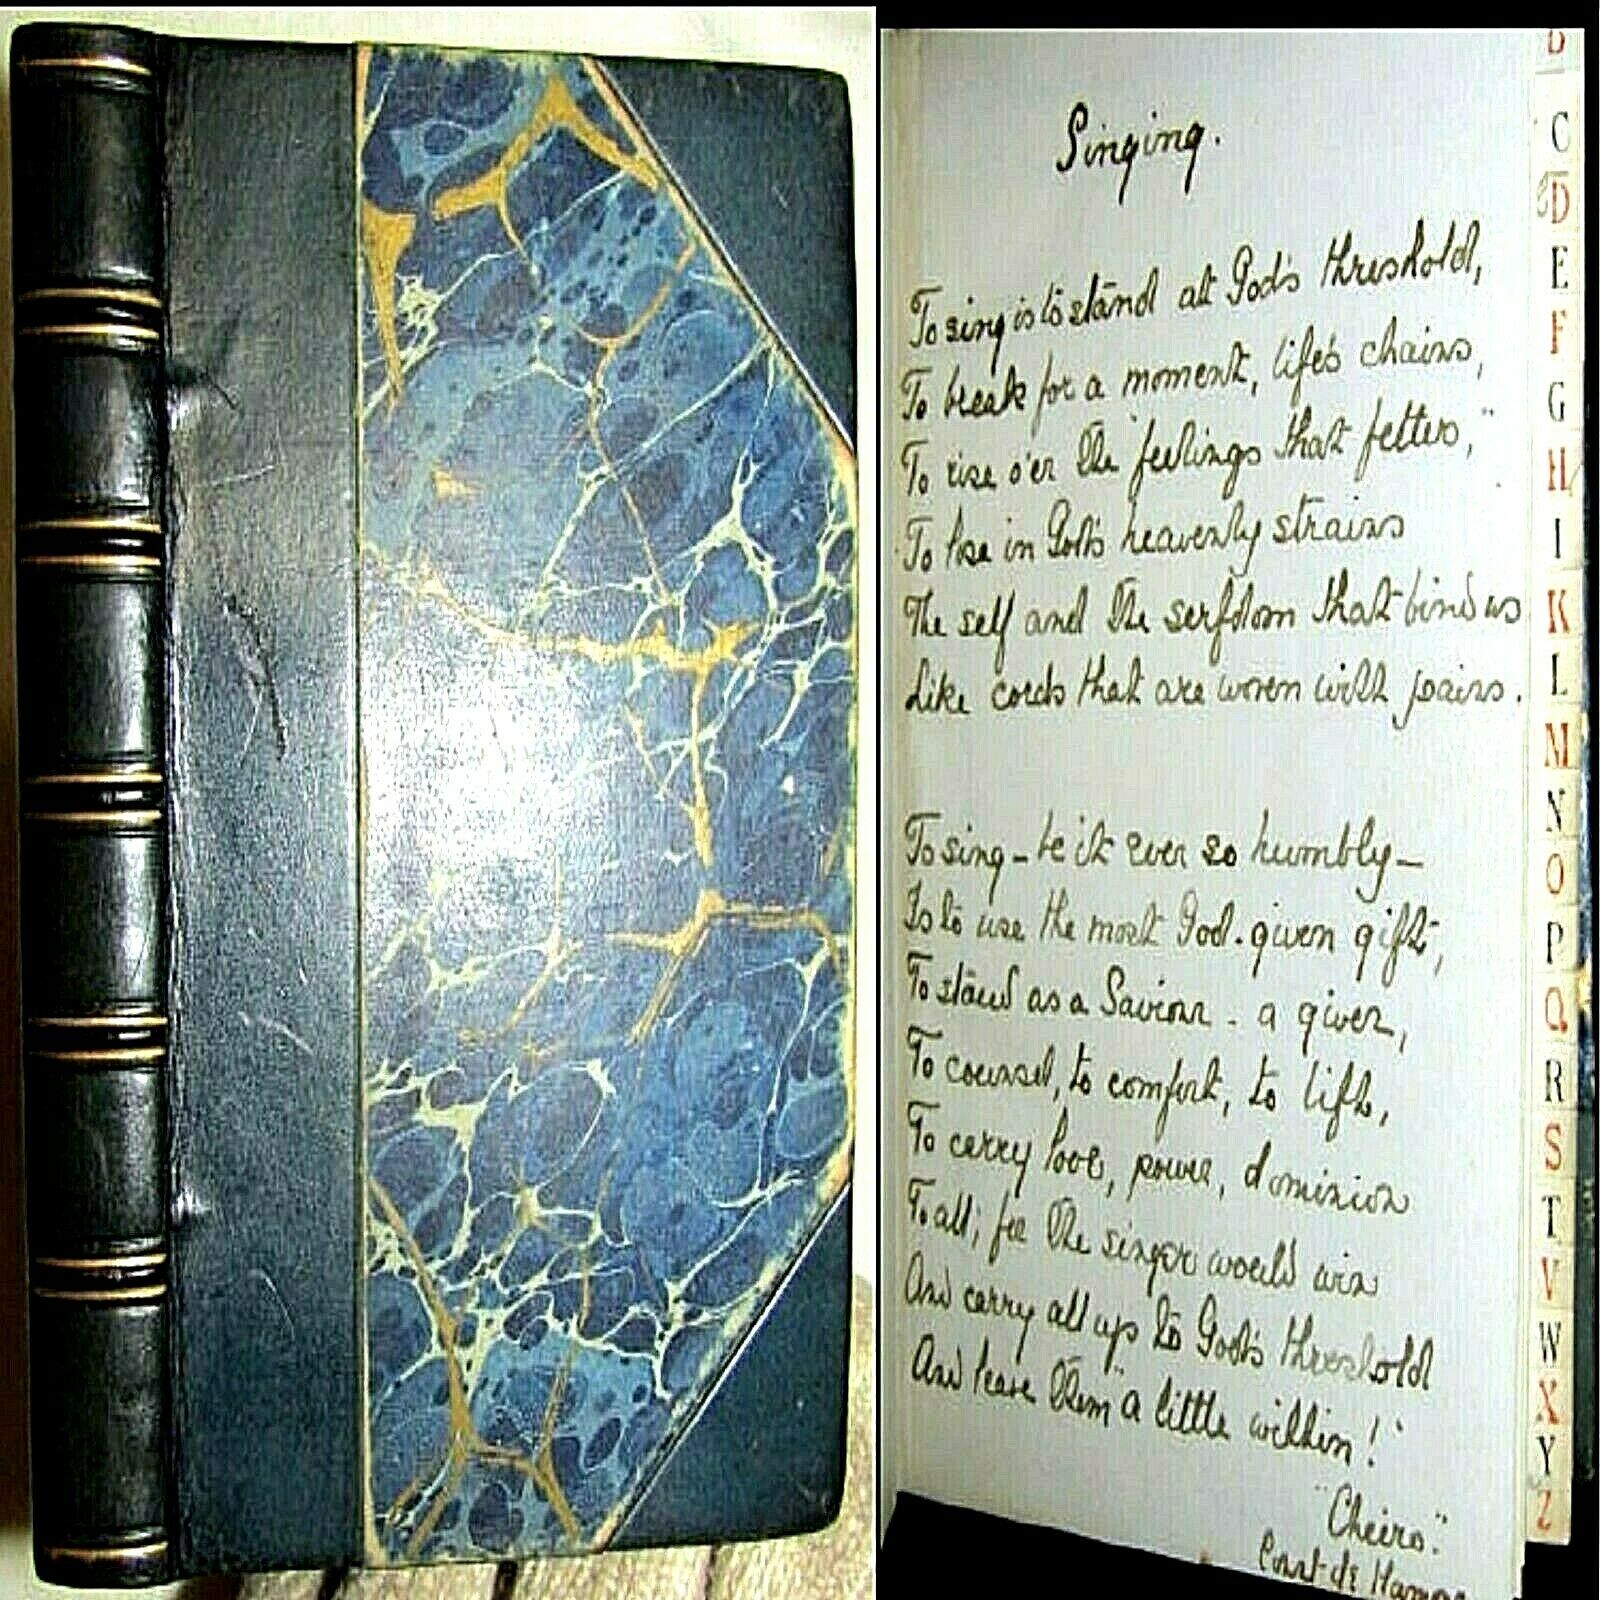 Singing.
To sing is to stand at God's threshold,
To break for a moment, life's chains,
To rise o'er the "feelings that fetter,"
To lose in God's heavenly strains
The self and the serfdom that binds us
Like cords that are woven with pains.
To sing – be it ever so humbly –
Is to use the most God-given gift,
To stand as a Saviour – a giver,
To counsel, to comfort, to lift,
To carry love, power, dominion
To all; for the singer would win
And carry all up to God's threshold
And leave them "a little within!"
"Cheiro."
Count de Hamon
B
C
D
E
F
G
H
I
K
L
M
N
O
P
Q
R
S
T
V
W
X
Y
Z